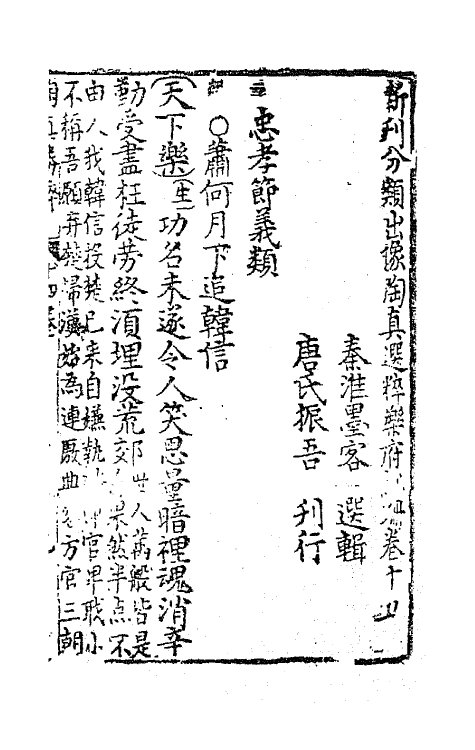 新刊分類出像陶真選粹樂府紅珊卷十四
秦淮墨客 選輯
唐氏振吾 刊行
忠孝節義類
○蕭何月下追韓信
天下樂 生 功名未遂令人笑思量暗裡魂消辛
勤受盡枉徒勞終須埋没荒郊 世人萬般皆是
命果然半点不
由人我韓信投楚已来自嫌執 郎官卑職小
不稱吾願弃楚歸漢 為連厫典 方官三朝